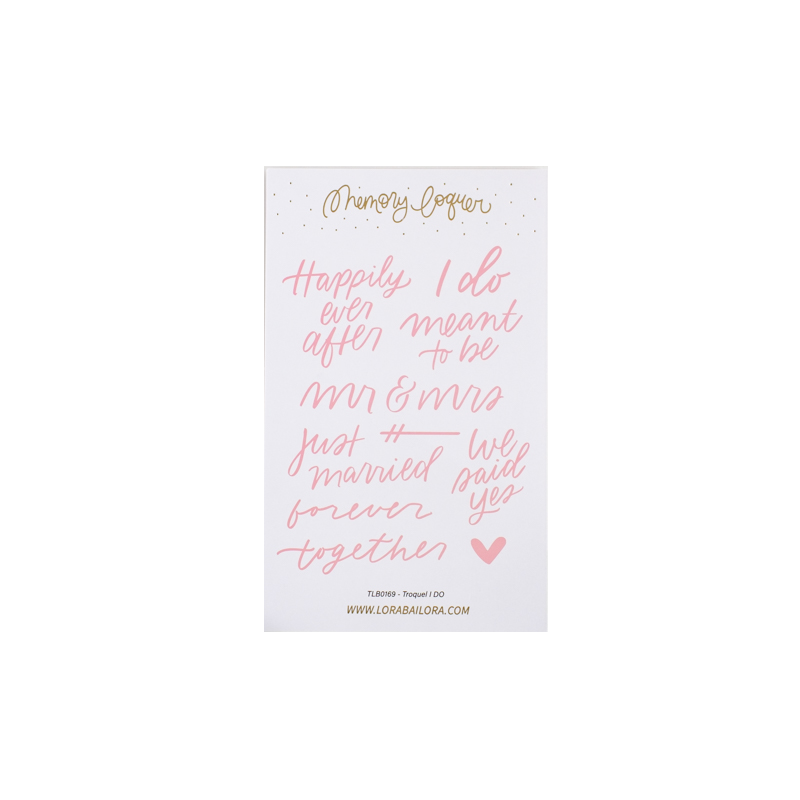 Memory loquer
Happily
ever
after
I do
meant
to be
mr & mrs
just
married
we
said
yes
forever
together
TLB0169 - Troquel I DO
WWW.LORABAILORA.COM